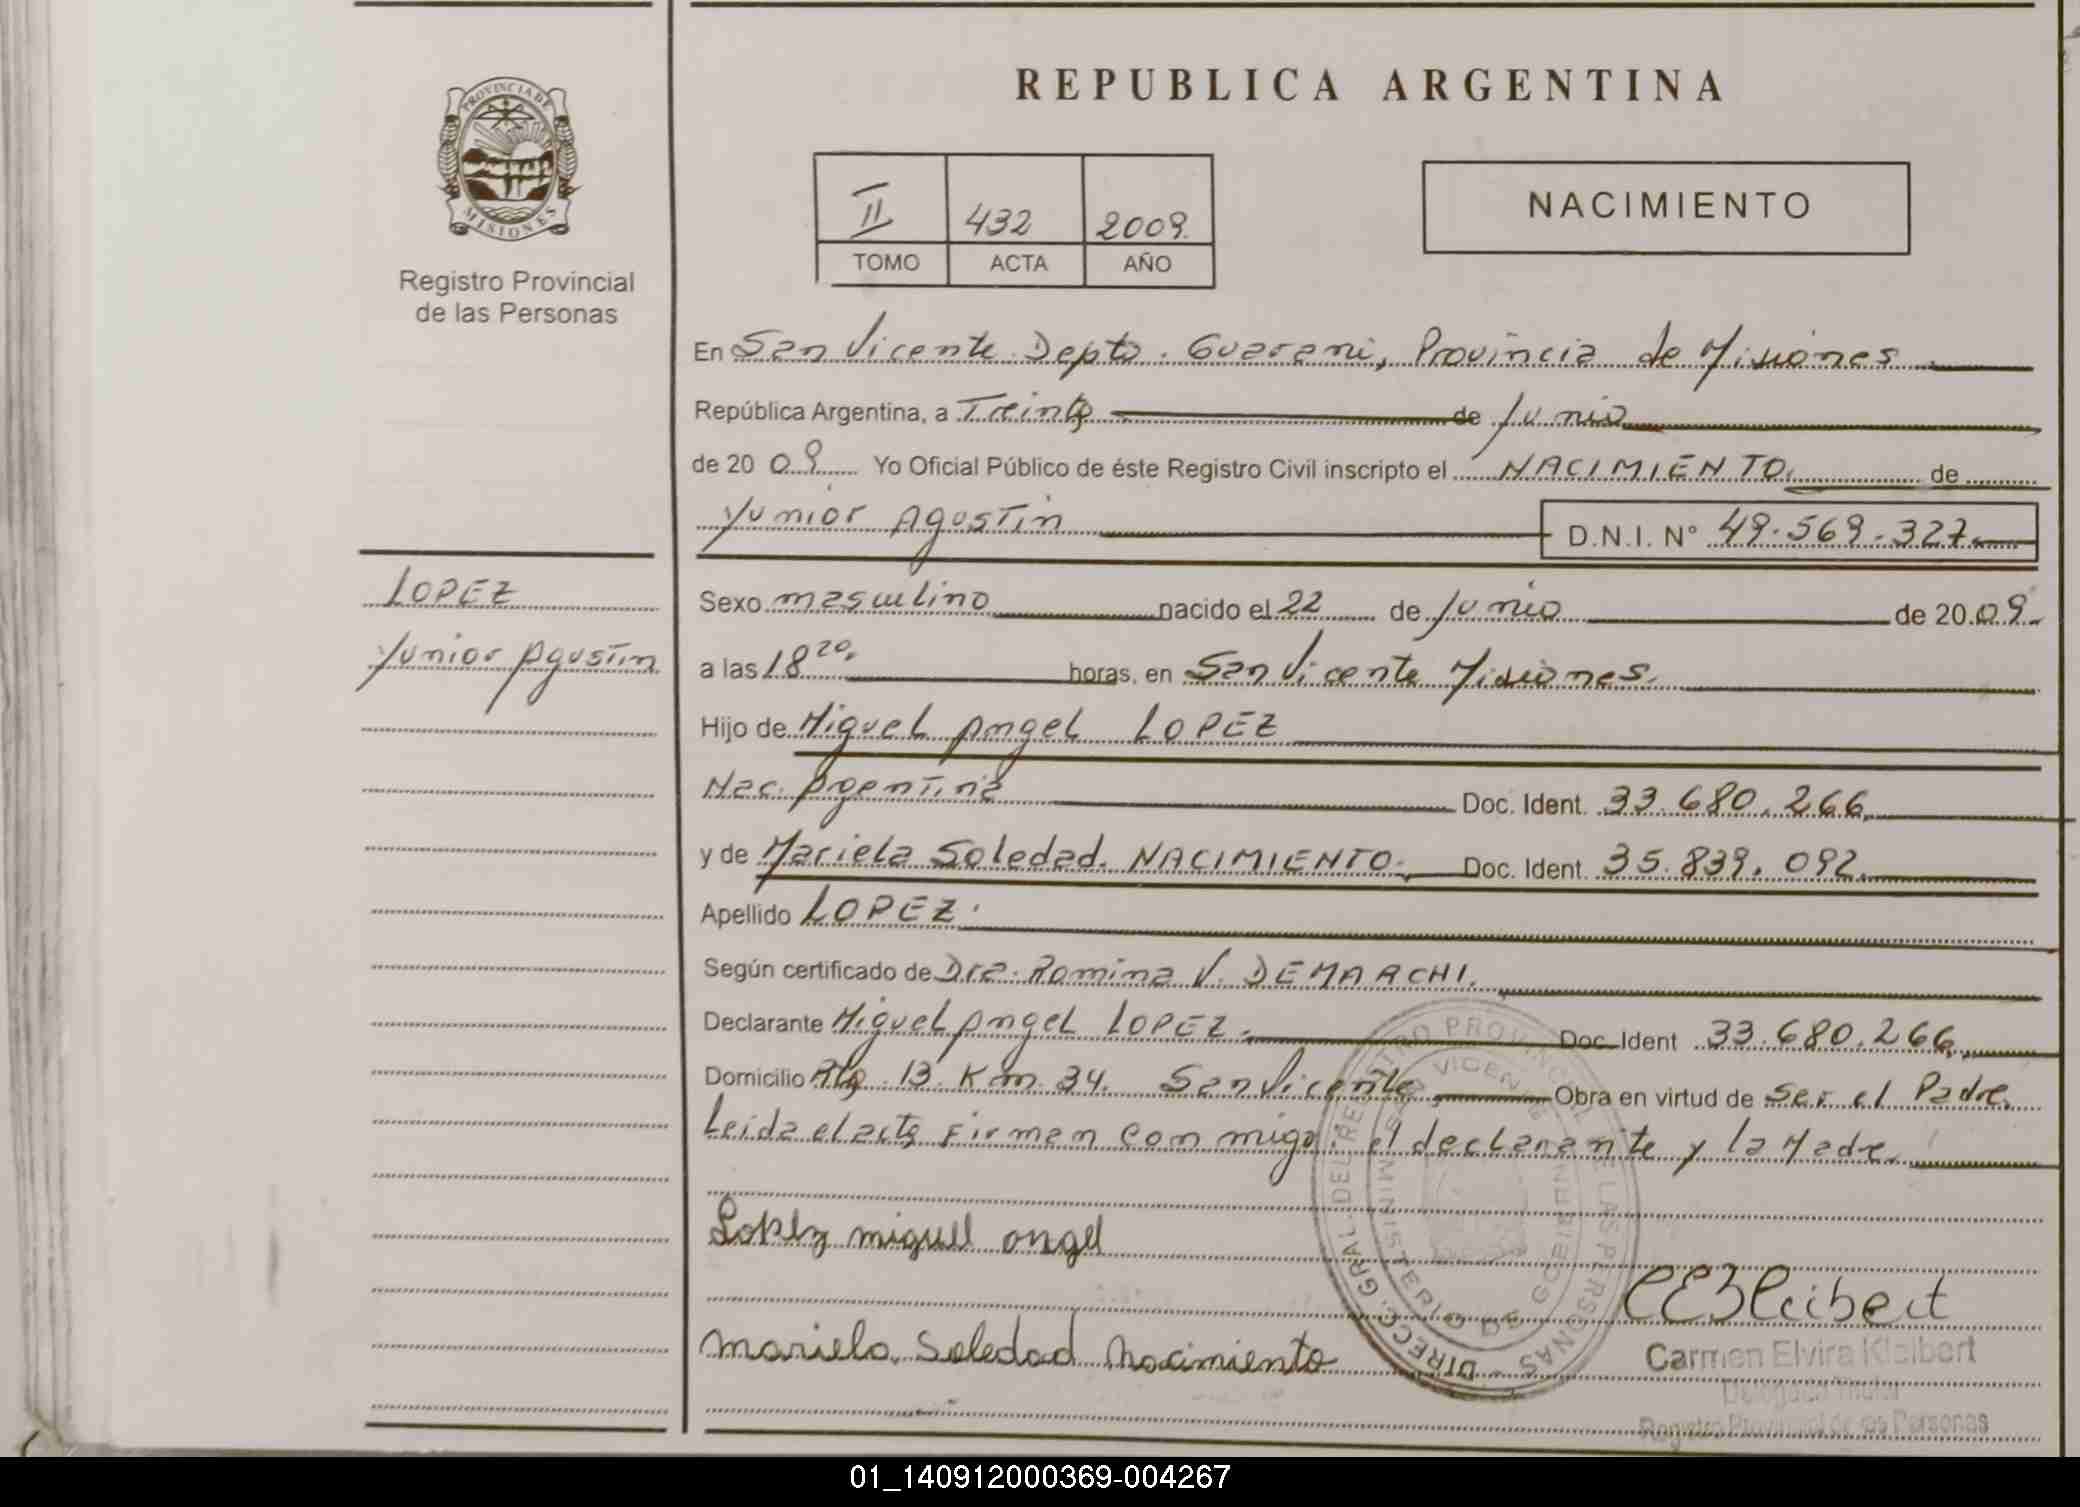 PROVINCIA DE
MISIONES
Registro Provincial
de las Personas
LOPEZ
Yunior Agustin
REPUBLICA ARGENTINA
II 432 2009
TOMO ACTA AÑO
NACIMIENTO
En San Vicente Depto. Guarani, Provincia de Misiones
República Argentina, a Treinta de Junio
de 2009 Yo Oficial Público de éste Registro Civil inscripto el NACIMIENTO. de
Yunior Agustin D.N.I. N° 49.569.327.
Sexo masculino nacido el 22 de Junio de 2009.
a las 18 20. horas, en San Vicente Misiones.
Hijo de Miguel Angel LOPEZ
Nac. Argentina Doc. Ident. 33.680.266.
y de Mariela Soledad. NACIMIENTO. Doc. Ident. 35.839.092.
Apellido LOPEZ.
Según certificado de Dra. Romina V. DEMARCHI.
Declarante Miguel Angel LOPEZ. Doc. Ident 33.680.266.
Domicilio Rta. 13 Km 34. San Vicente Obra en virtud de Ser el Padre.
Leida el acta Firman con migo. el declarante y la Madre.
Lopez miguel angel
CEKleibert
Mariela Soledad Nacimiento
DIRECC. GRAL. DEL REGISTRO PROVINCIAL DE LAS PERSONAS
SAN VICENTE
MINISTERIO DE GOBIERNO
Carmen Elvira Kleibert
Delegada Titular
Registro Provincial de las Personas
01_140912000369-004267